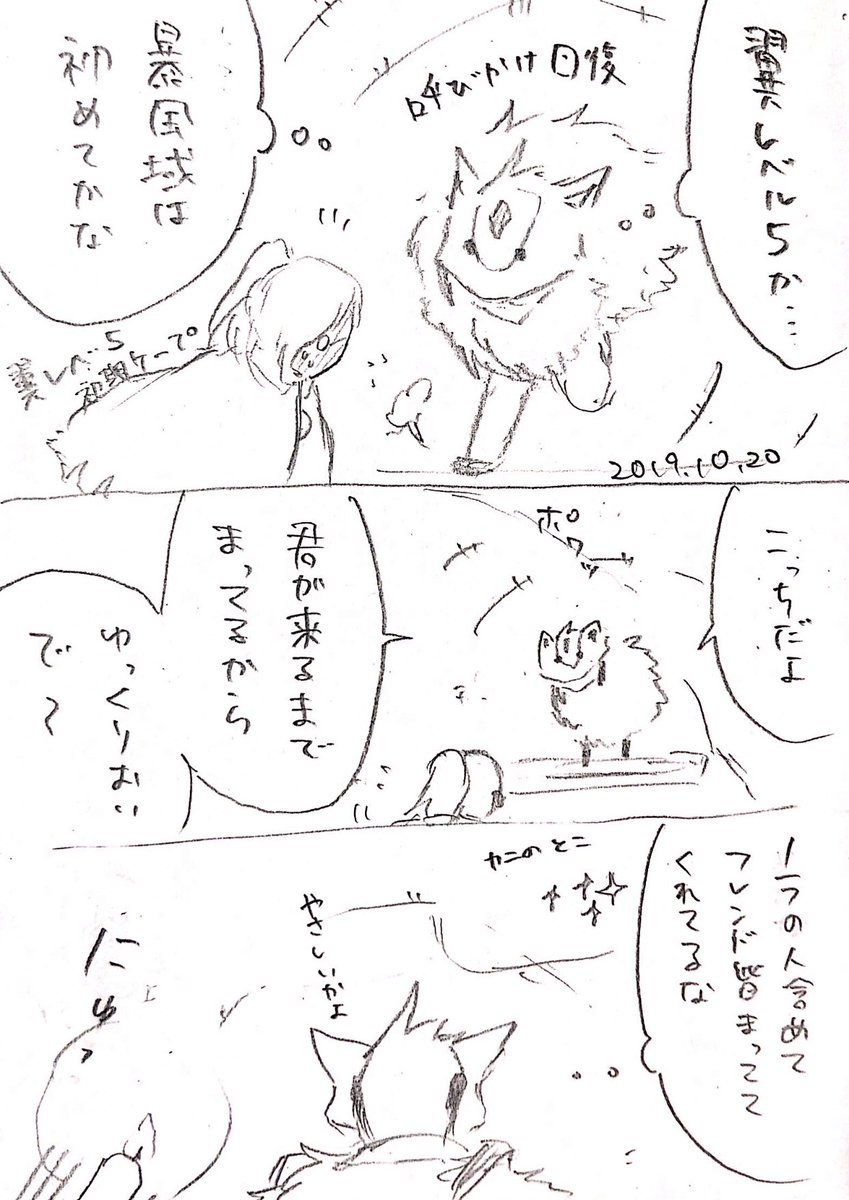 翼レベル5か…
呼びかけ回復
暴風域は
初めてかな
翼レベ5
初期ケープ
2019.10.20
こっちだよ
ポワーッ
君が来るまで
まってるから
ゆっくりおい
で〜
1つの人含めて
フレンド皆まってて
くれてるな
カニのとこ
やさしいかよ
にゅっ